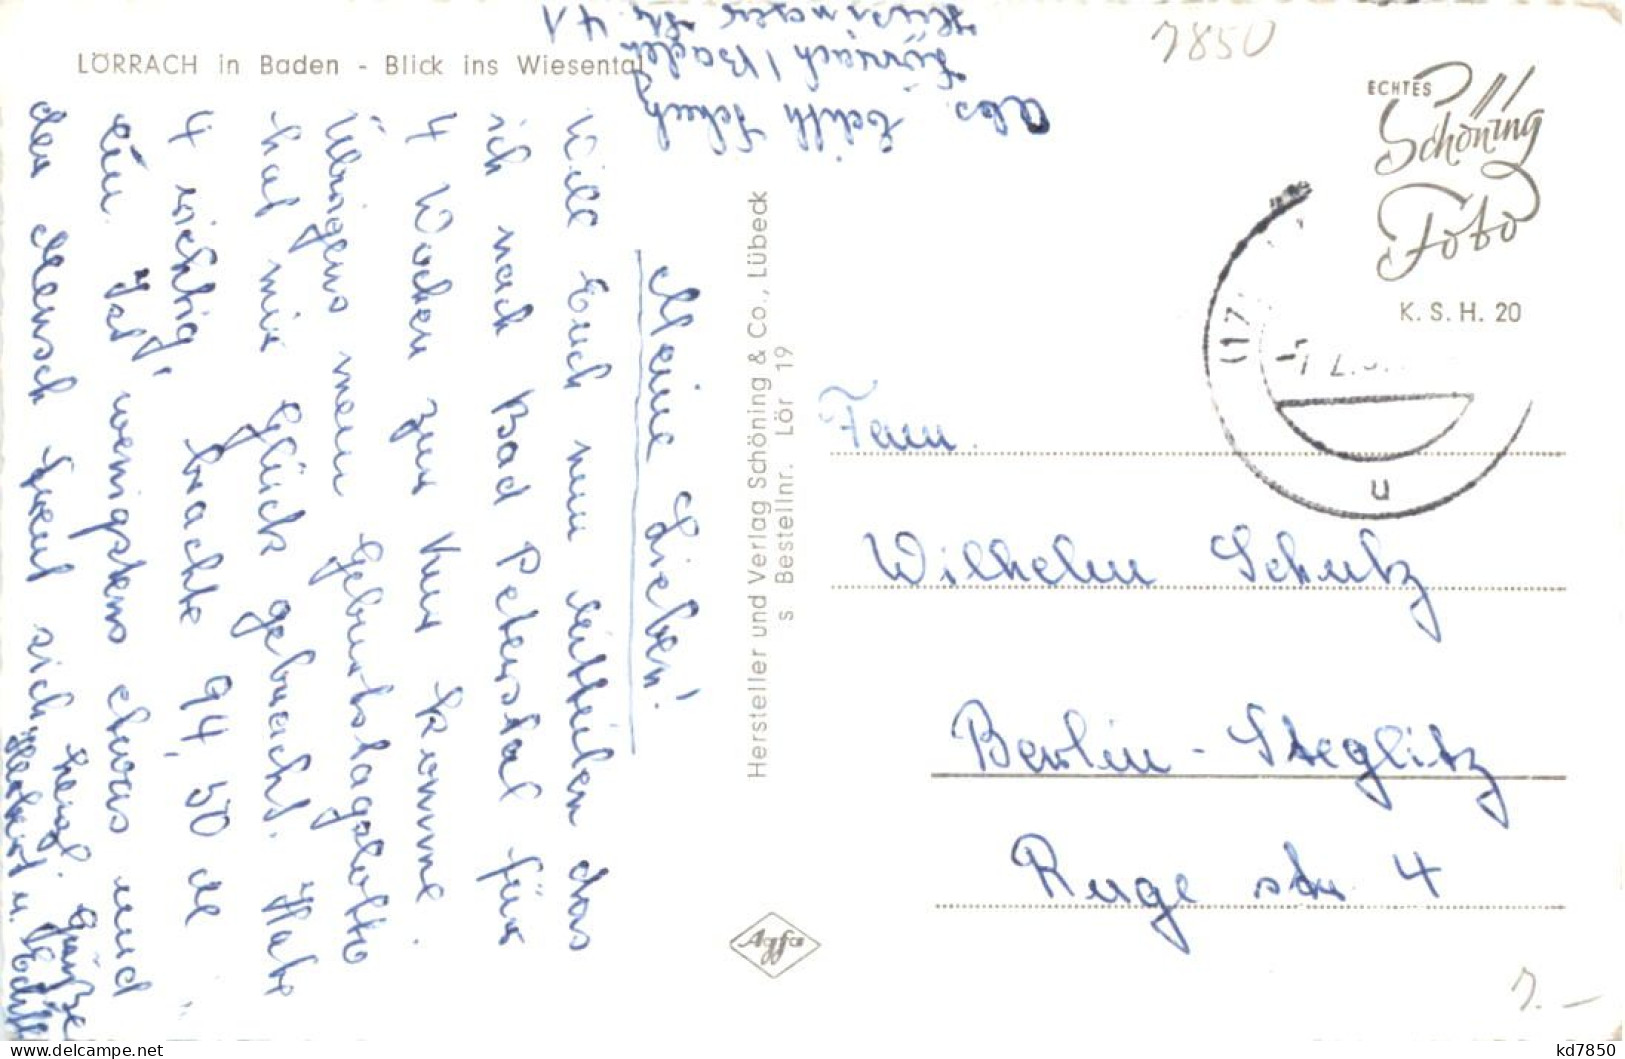 LÖRRACH in Baden - Blick ins Wiesental
Abs. Edith Schutz
Lörrach / Baden
41
7850
ECHTES
Schöning
Foto
K. S. H. 20
(17
u
Meine Lieben!
Will Euch nun mitteilen das
ich nach Bad Peterstal für
4 Wochen zur Kur komme.
Übrigens mein Geburtstagslotto
hat mir Glück gebracht. Habe
4 richtig, brachte 94,50 M
ein. Ist wenigstens etwas und
der Mensch freut sich.
Herzl. Grüße
Herbert u. Edith
Hersteller und Verlag Schöning & Co., Lübeck
s Bestellnr. Lör 19
Agfa
Fam.
Wilhelm Schutz
Berlin - Steglitz
Ruge str 4
7.-
kd7850